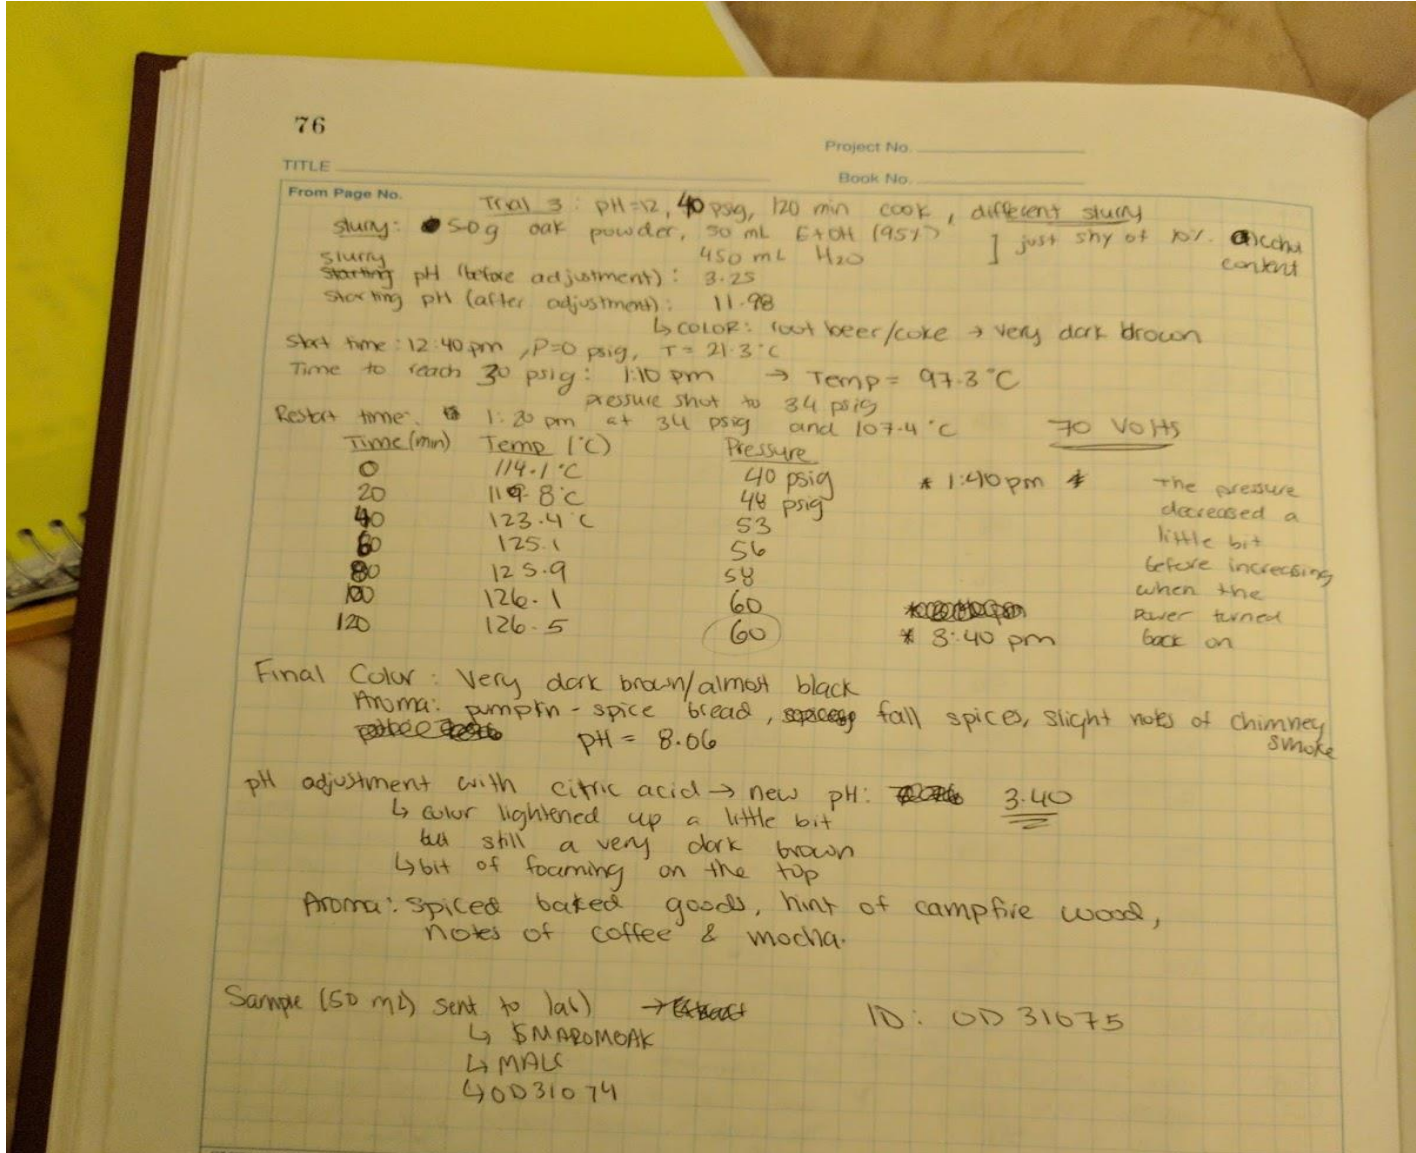 76
Project No.
TITLE
Book No.
From Page No.
Trial 3 : pH=12, 40 psig, 120 min cook, different slurry
slurry: 50g oak powder, 50 mL EtOH (95%) ] just shy of 10% alcohol
450 mL H2O content
slurry
Starting pH (before adjustment): 3.25
Starting pH (after adjustment): 11.98
↳ COLOR: root beer/coke → very dark brown
Start time: 12:40 pm, P=0 psig, T= 21.3°C
Time to reach 30 psig: 1:10 pm → Temp = 97.3°C
pressure shut to 34 psig
Restart time: 1:20 pm at 34 psig and 107.4°C 70 Volts
Time (min) Temp (°C) Pressure
0 114.1°C 40 psig * 1:40pm * The pressure
20 119.8°C 48 psig decreased a
40 123.4°C 53 little bit
60 125.1 56 before increasing
80 125.9 58 when the
100 126.1 60 power turned
120 126.5 60 * 3:40 pm back on
Final Color: Very dark brown/almost black
Aroma: pumpkin-spice bread, fall spices, slight notes of chimney
smoke
pH = 8.06
pH adjustment with citric acid → new pH: 3.40
↳ color lightened up a little bit
but still a very dark brown
↳ bit of foaming on the top
Aroma: spiced baked goods, hint of campfire wood,
notes of coffee & mocha.
Sample (50 mL) sent to lab) → ID: OD31075
↳ $MAROMOAK
↳ MALC
↳ OD31074